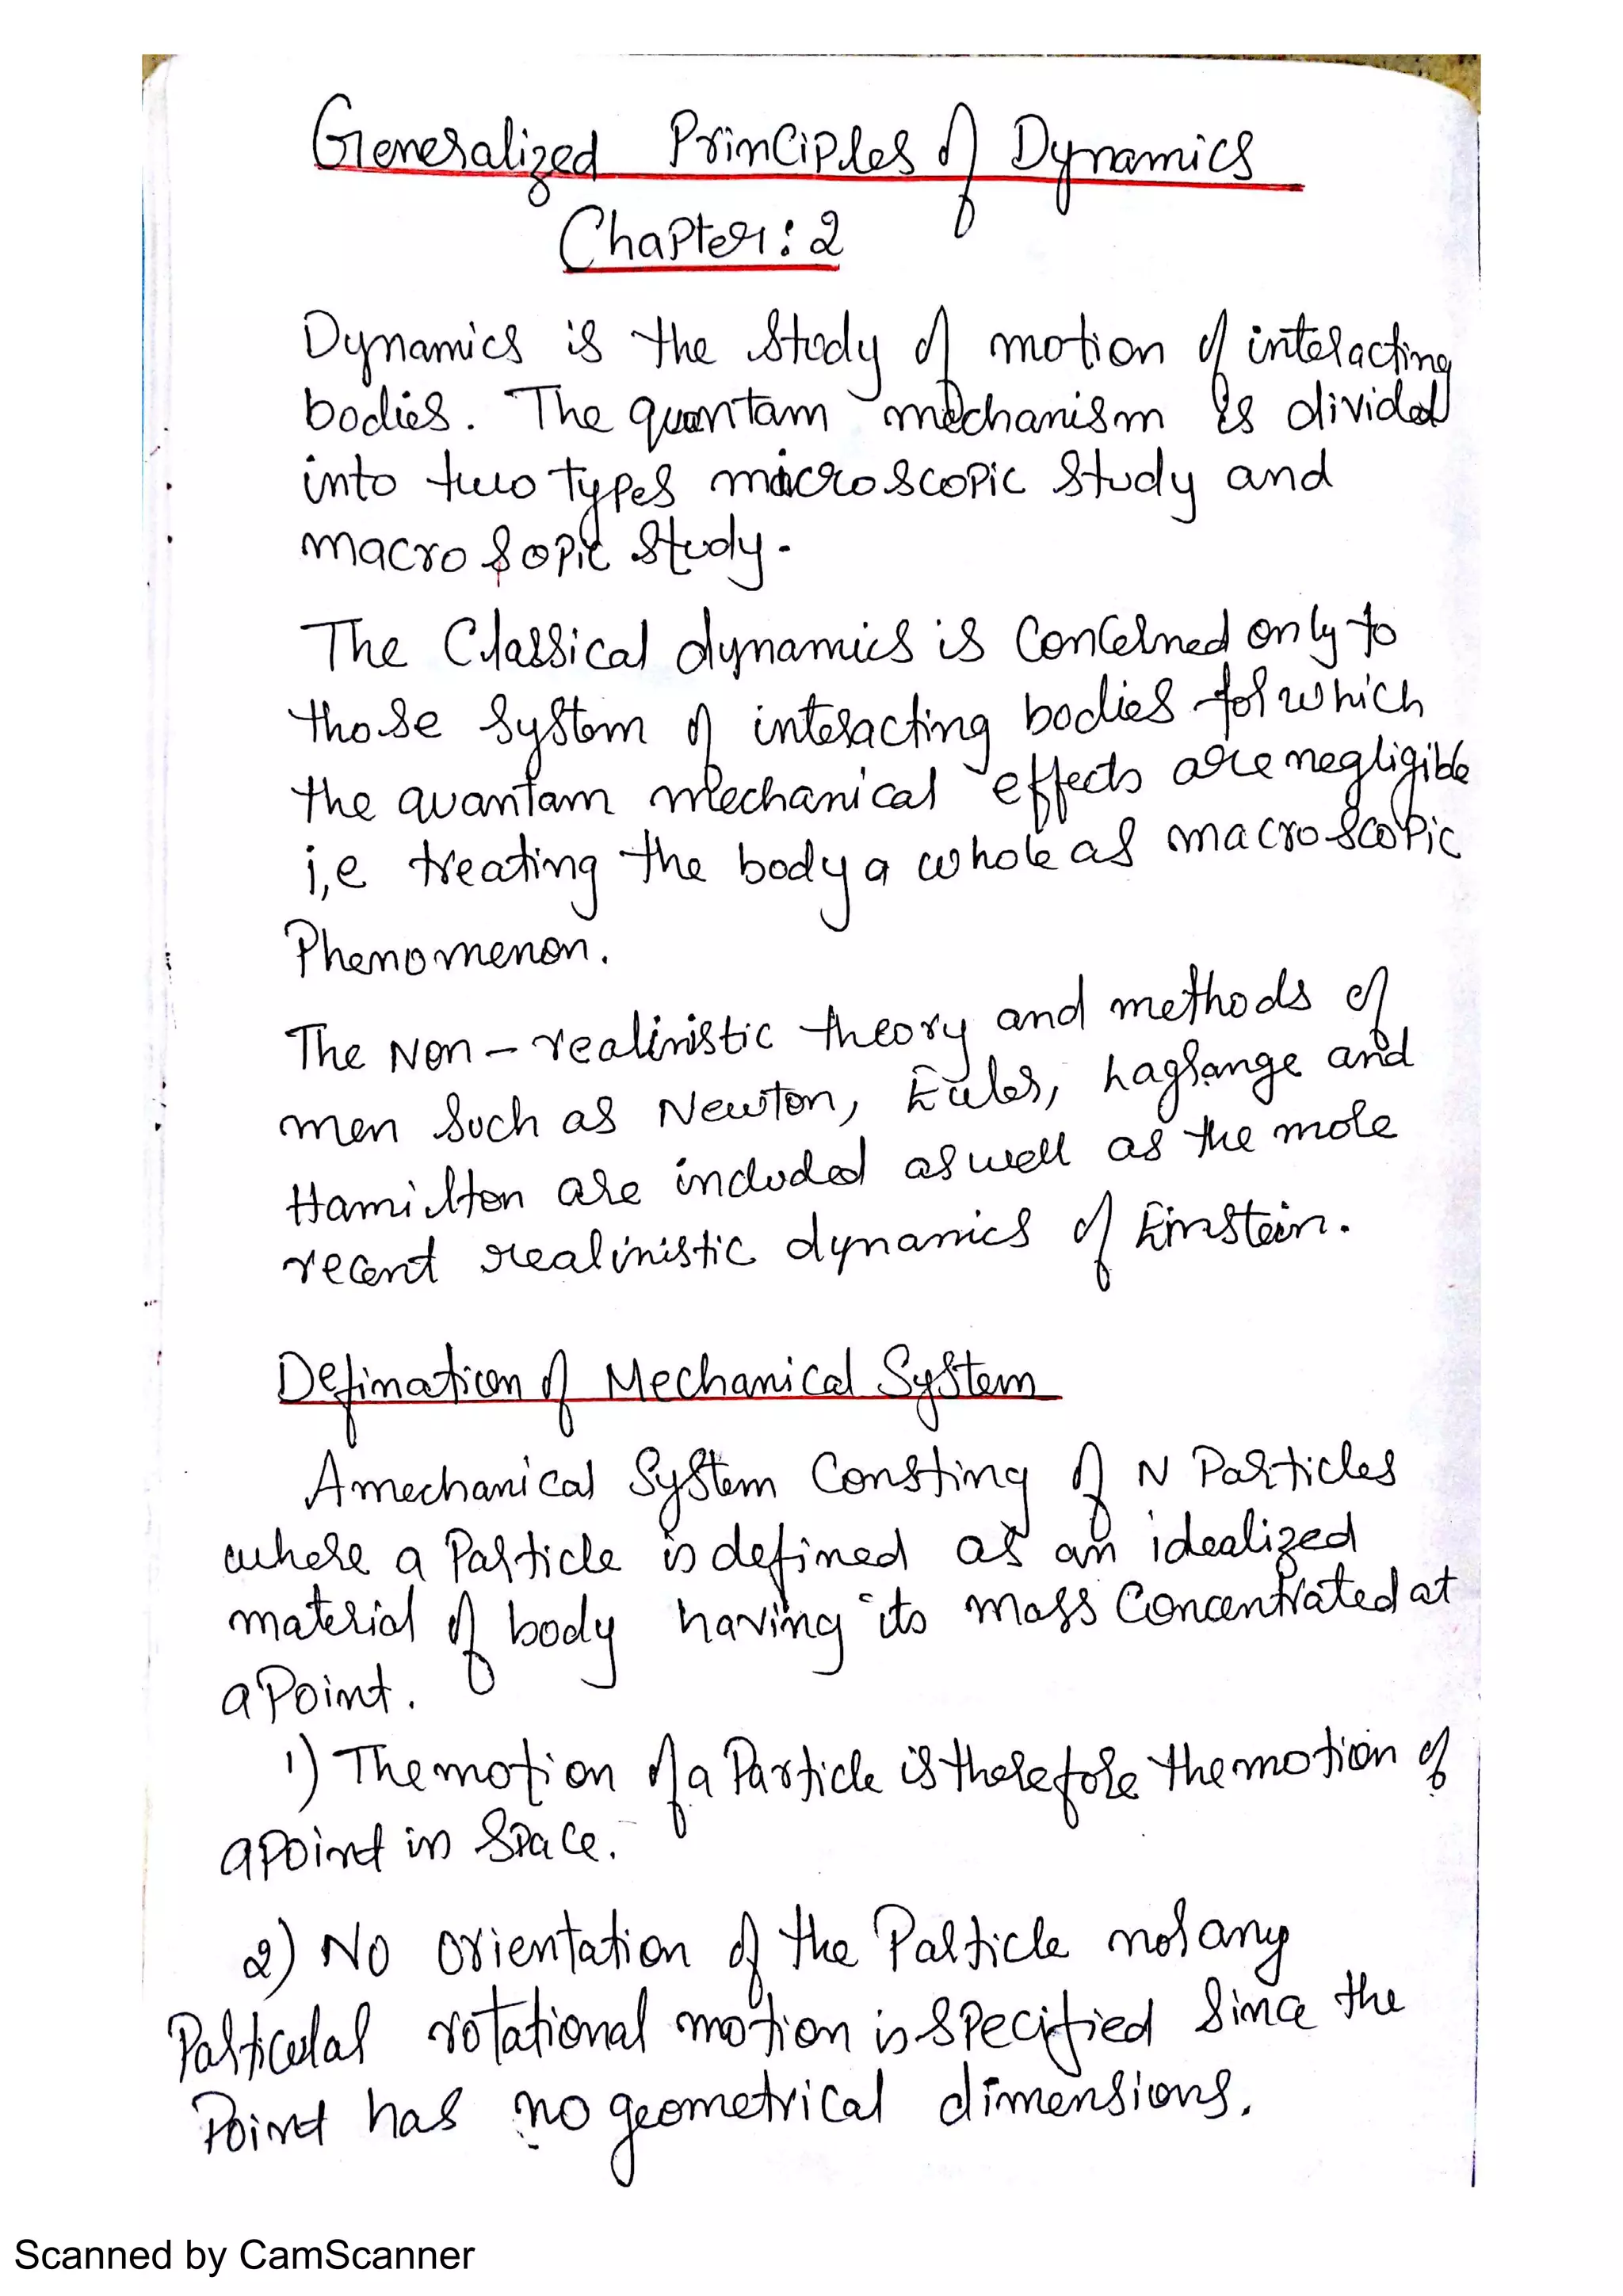 Generalized Principles of Dynamics
Chapter: 2
Dynamics is the study of motion of interacting
bodies. The quantam mechanism is divided
into two types microscopic study and
macrosopic study.
The Classical dynamics is Concerned only to
those system of interacting bodies for which
the quantam mechanical effects are negligible
i,e treating the body a whole as macroscopic
Phenomenon.
The Non-realinistic theory and methods of
men such as Newton, Euler, Lagrange and
Hamilton are included as well as the more
recent realinistic dynamics of Einstein.
Defination of Mechanical System
A mechanical System Consting of N Particles
where a Particle is defined as an idealized
material of body having its mass Concentrated at
a Point.
1) The motion of a Particle is therefore the motion of
a point in Space.
2) No orientation of the Particle nor any
Particular rotational motion is specified Since the
Point has no geometrical dimensions.
Scanned by CamScanner